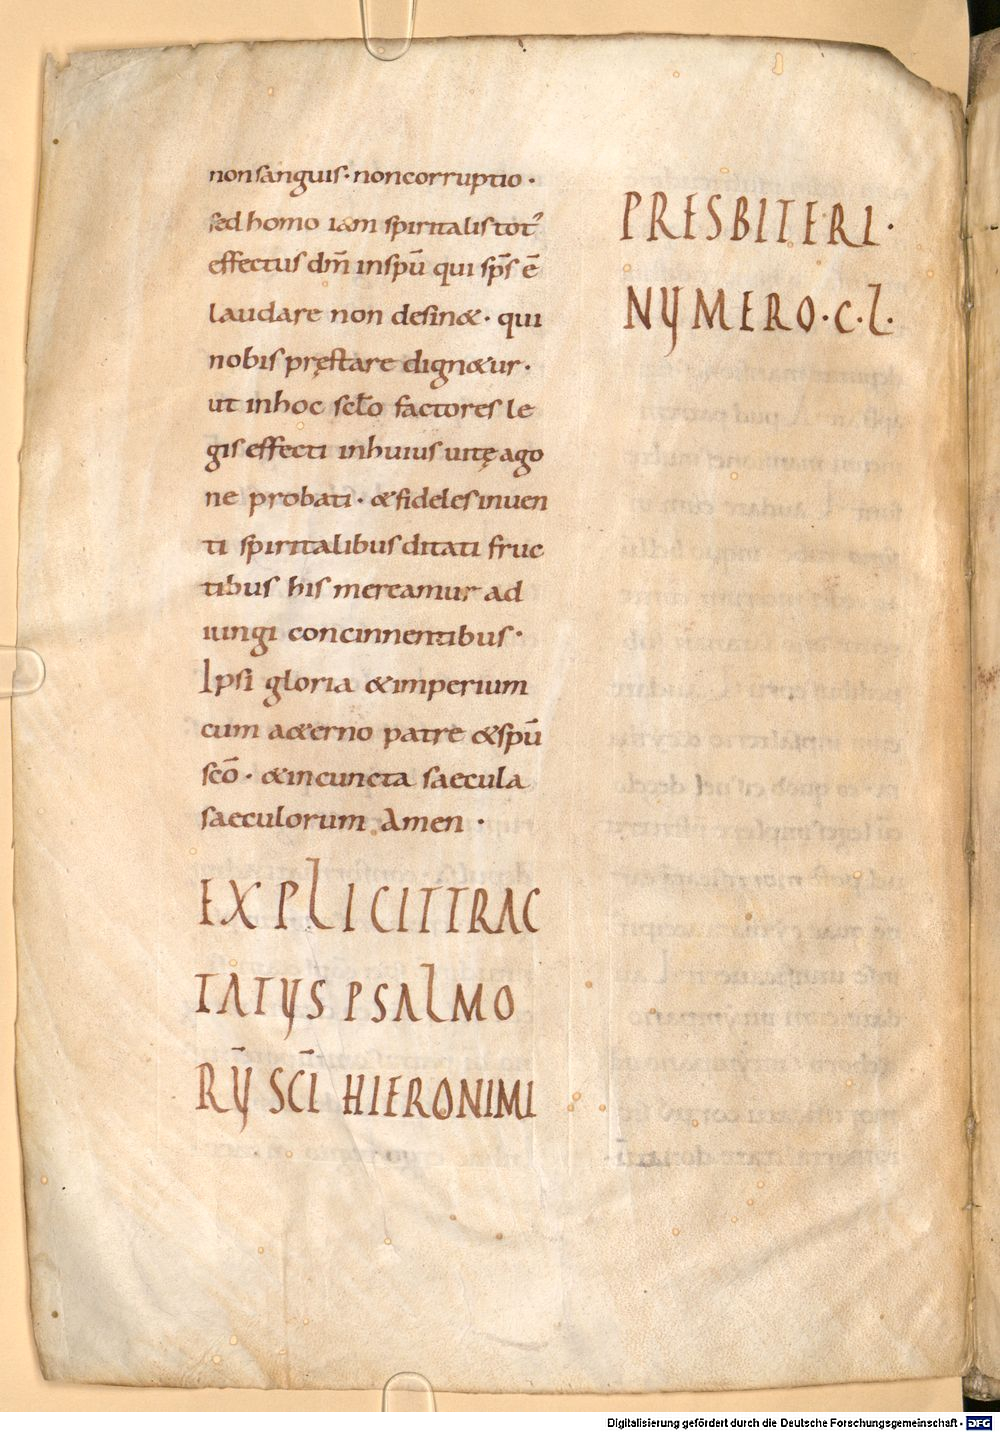 non sanguis · non corruptio ·
sed homo iam spiritalis tot᾽
effectus dm̄ in spū qui sps̄ ē
laudare non desin& · qui
nobis pręstare dign&ur ·
ut in hoc sclo̅ factores le
gis effecti in huius uitę ago
ne probati · & fideles inuen
ti spiritalibus ditati fruc
tibus his mereamur ad
iungi concinnentibus ·
Ipsi gloria & imperium
cum a&erno patre & spū
scō · & in cuncta saecula
saeculorum Amen ·
EXPLICIT TRAC
TATUS PSALMO
RŪ SC̄I HIERONIMI
PRESBITERI ·
NUMERO · C · L ·
Digitalisierung gefördert durch die Deutsche Forschungsgemeinschaft - DFG